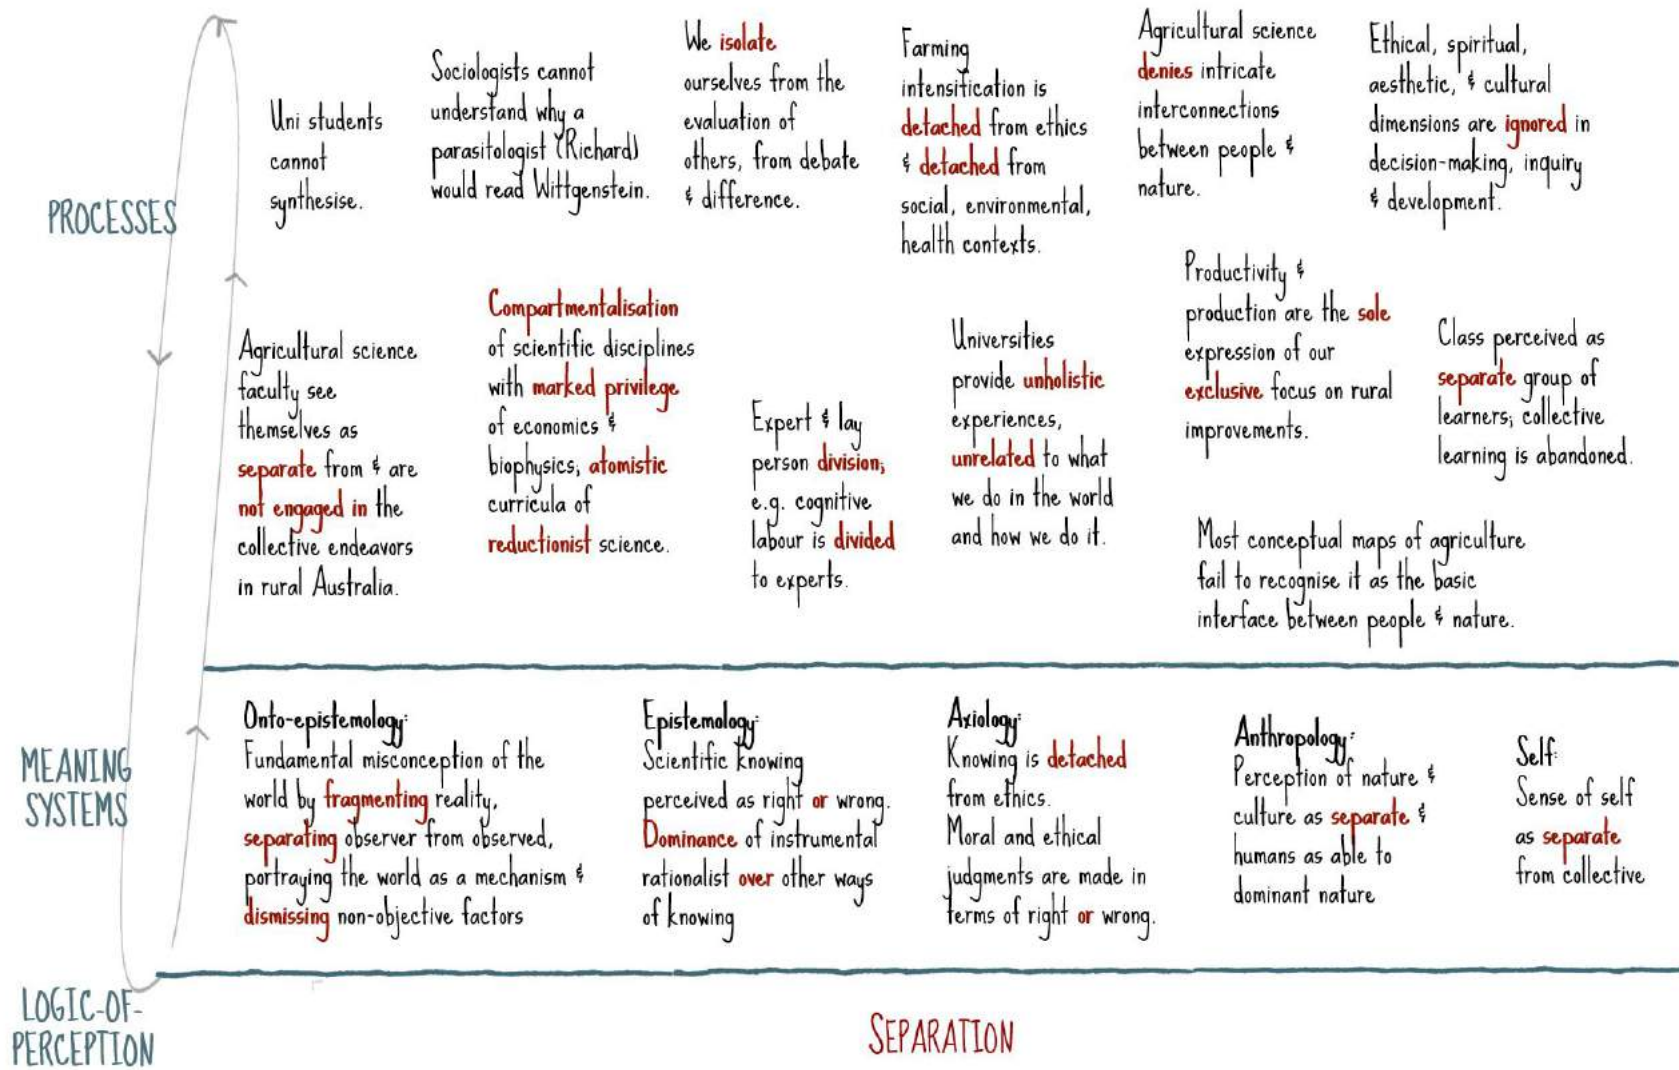 PROCESSES
Uni students
cannot
synthesise.
Sociologists cannot
understand why a
parasitologist (Richard)
would read Wittgenstein.
We isolate
ourselves from the
evaluation of
others, from debate
& difference.
Farming
intensification is
detached from ethics
& detached from
social, environmental,
health contexts.
Agricultural science
denies intricate
interconnections
between people &
nature.
Ethical, spiritual,
aesthetic, & cultural
dimensions are ignored in
decision-making, inquiry
& development.
Agricultural science
faculty see
themselves as
separate from & are
not engaged in the
collective endeavors
in rural Australia.
Compartmentalisation
of scientific disciplines
with marked privilege
of economics &
biophysics; atomistic
curricula of
reductionist science.
Expert & lay
person division;
e.g. cognitive
labour is divided
to experts.
Universities
provide unholistic
experiences,
unrelated to what
we do in the world
and how we do it.
Productivity &
production are the sole
expression of our
exclusive focus on rural
improvements.
Class perceived as
separate group of
learners; collective
learning is abandoned.
Most conceptual maps of agriculture
fail to recognise it as the basic
interface between people & nature.
MEANING
SYSTEMS
Onto-epistemology:
Fundamental misconception of the
world by fragmenting reality,
separating observer from observed,
portraying the world as a mechanism &
dismissing non-objective factors
Epistemology:
Scientific knowing
perceived as right or wrong.
Dominance of instrumental
rationalist over other ways
of knowing
Axiology:
Knowing is detached
from ethics.
Moral and ethical
judgments are made in
terms of right or wrong.
Anthropology:
Perception of nature &
culture as separate &
humans as able to
dominant nature
Self:
Sense of self
as separate
from collective
LOGIC-OF-
PERCEPTION
SEPARATION